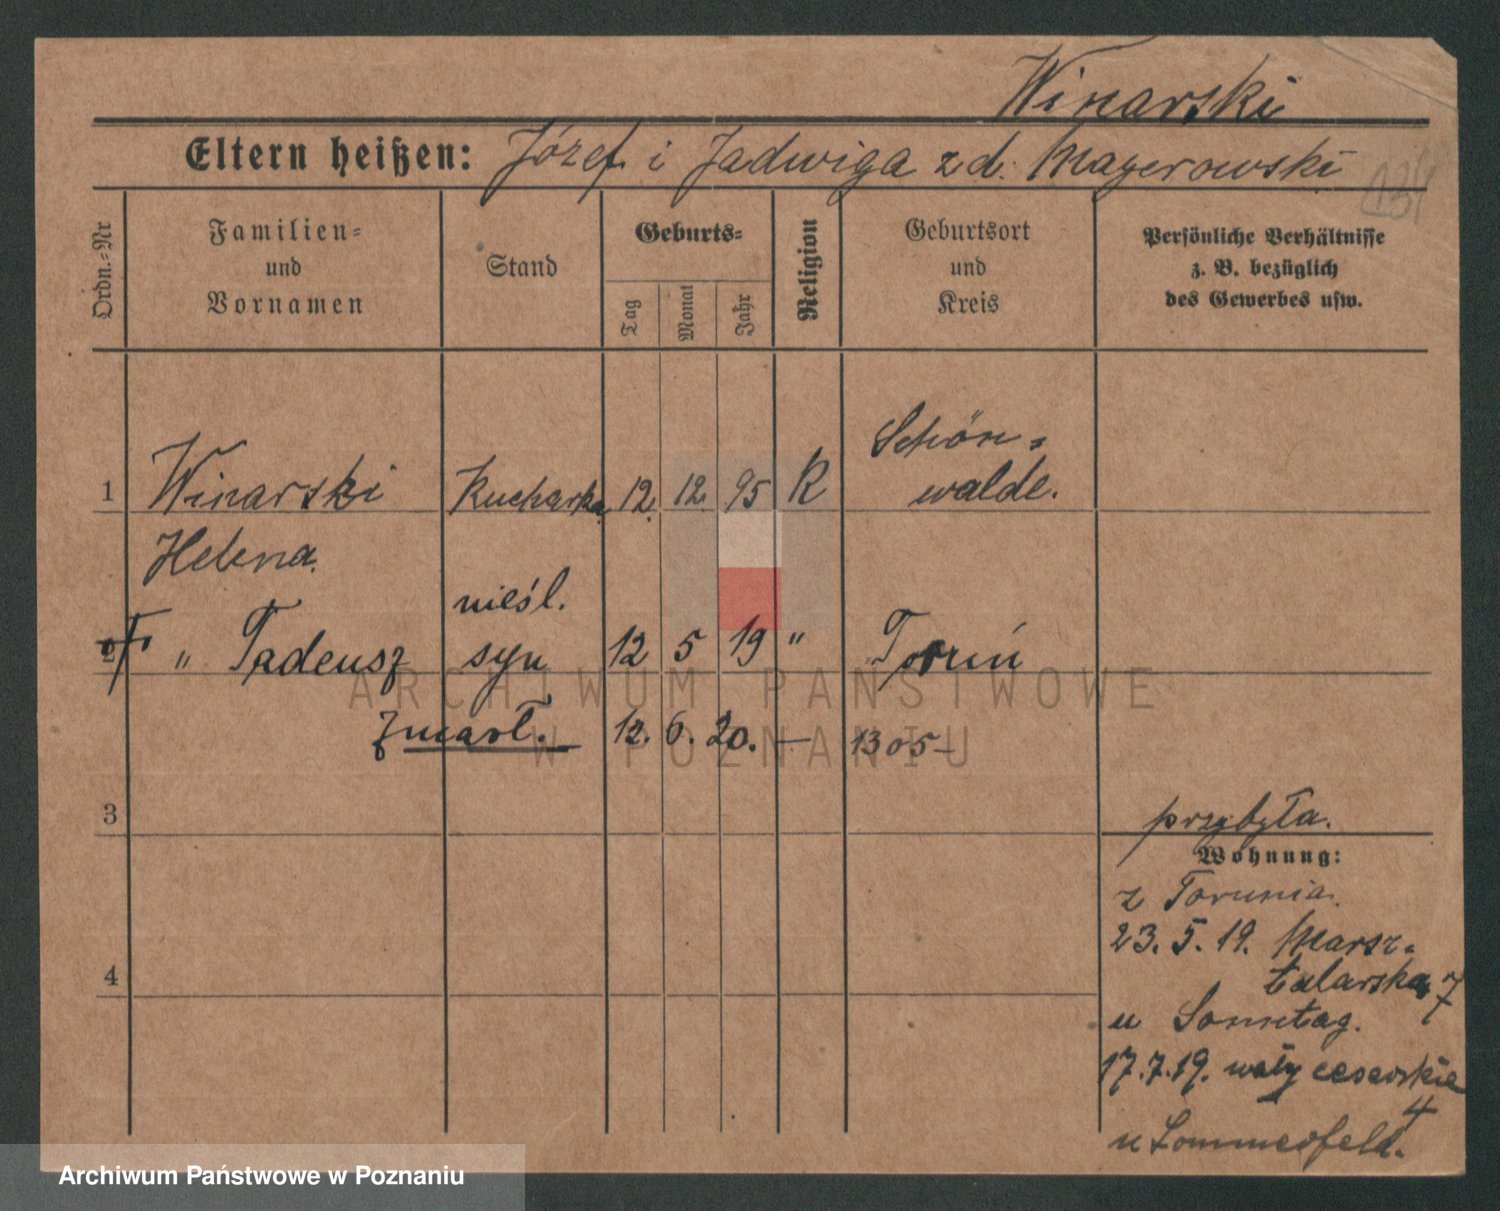 Winarski
Eltern heißen: Józef i Jadwiga z d. Mayerowski
Ordn.=Nr
Familien=
und
Vornamen
Stand
Geburts=
Tag
Monat
Jahr
Religion
Geburtsort
und
Kreis
Persönliche Verhältnisse
z. B. bezüglich
des Gewerbes usw.
Schön=
1 Winarski Kucharka 12. 12. 95 R walde.
Helena.
nieśl.
2 " Tadeusz syn 12 5 19 " Toruń
zmarł. 12. 6. 20. — 1305—
3
przybyła.
Wohnung:
z Torunia.
23. 5. 19. Marsz=
4
talarska 7
u Sonntag.
17. 7. 19. wały cesarskie
4
u Sommerfeld.
ARCHIWUM PAŃSTWOWE
W POZNANIU
Archiwum Państwowe w Poznaniu